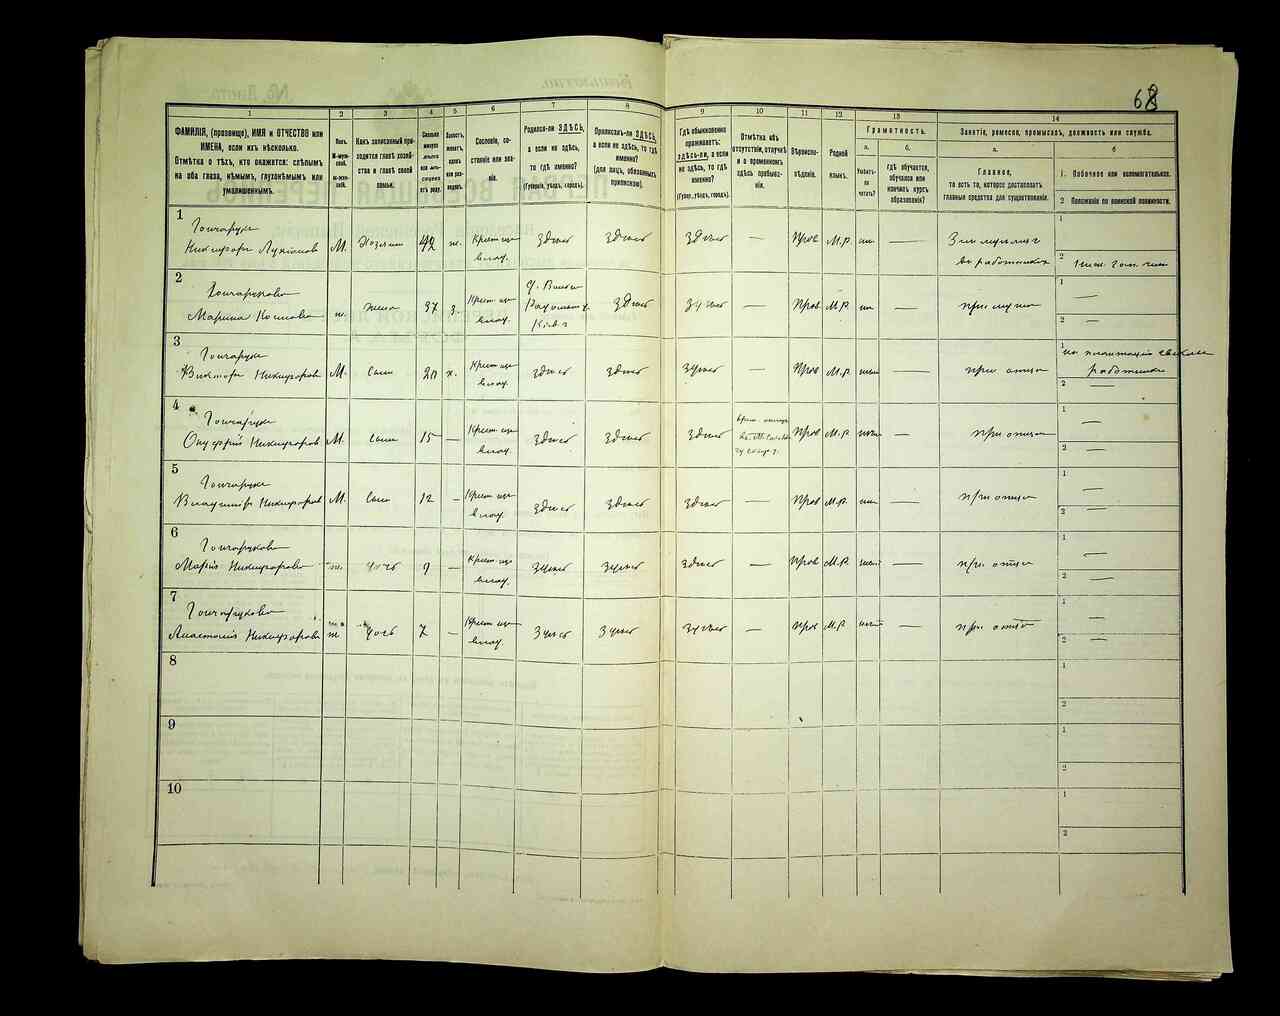 68
1
2
3
4
5
6
7
8
9
10
11
12
13
14
ФАМИЛІЯ, (прозвище), ИМЯ и ОТЧЕСТВО или
ИМЕНА, если ихъ нѣсколько.
Отмѣтка о тѣхъ, кто окажется: слѣпымъ
на оба глаза, нѣмымъ, глухонѣмымъ или
умалишеннымъ.
Полъ.
М-муж-
ской.
Ж-жен-
скій.
Какъ записанный при-
ходится главѣ хозяй-
ства и главѣ своей
семьи.
Сколько
минуло
лѣтъ
или мѣ-
сяцевъ
отъ роду.
Холостъ,
женатъ,
вдовъ
или раз-
веденъ.
Сословіе, со-
стояніе или зва-
ніе.
Родился-ли ЗДѢСЬ,
а если не здѣсь,
то гдѣ именно?
(Губернія, уѣздъ, городъ).
Приписанъ-ли ЗДѢСЬ,
а если не здѣсь, то гдѣ
именно?
(для лицъ, обязанныхъ
припискою).
Гдѣ обыкновенно
проживаетъ:
здѣсь-ли, а если
не здѣсь, то гдѣ
именно?
(Губер., уѣздъ, городъ).
Отмѣтка объ
отсутствіи, отлучкѣ
и о временномъ
здѣсь пребыва-
ніи.
Вѣроиспо-
вѣданіе.
Родной
языкъ.
Грамотность.
а.
Умѣетъ-
ли
читать?
б.
гдѣ обучается,
обучался или
кончилъ курсъ
образованія?
Занятіе, ремесло, промыселъ, должность или служба.
а.
Главное,
то есть то, которое доставляетъ
главныя средства для существованія.
б
1. Побочное или вспомогательное.
2 Положеніе по воинской повинности.
1
Гончарукъ
Никифоръ
М.
Хозяинъ
42
ж.
здѣсь
здѣсь
здѣсь
—
Прав
М.Р.
—
въ работникахъ
1
2
2
Гончарукова
Марина
ж.
жена
37
з.
здѣсь
здѣсь
—
Прав
М.Р.
—
при мужѣ
1
—
2
—
3
Гончарукъ
Викторъ Никифоровъ
М.
сынъ
20
х.
здѣсь
здѣсь
здѣсь
—
Прав
М.Р.
—
при отцѣ
1
на плантаціи свеклы
работникъ
2
—
4
Гончарукъ
Онуфрій Никифоровъ
М.
сынъ
15
—
здѣсь
здѣсь
здѣсь
Прав
М.Р.
—
при отцѣ
1
—
2
—
5
Гончарукъ
Владиміръ Никифоровъ
М.
сынъ
12
—
здѣсь
здѣсь
здѣсь
—
Прав
М.Р.
—
при отцѣ
1
—
2
—
6
Гончарукова
Марія Никифорова
ж.
дочь
9
—
здѣсь
здѣсь
здѣсь
—
Прав
М.Р.
—
при отцѣ
1
—
2
—
7
Гончарукова
Анастасія Никифорова
ж
дочь
7
—
здѣсь
здѣсь
здѣсь
—
Прав
М.Р.
—
при отцѣ
1
—
2
—
8
1
2
9
1
2
10
1
2